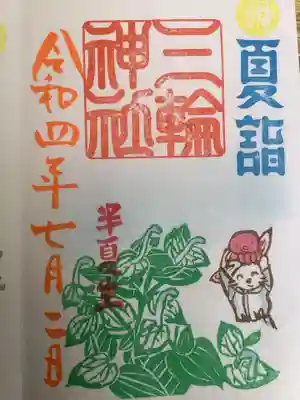 夏詣
三輪
神社
半夏生
令和四年七月二日